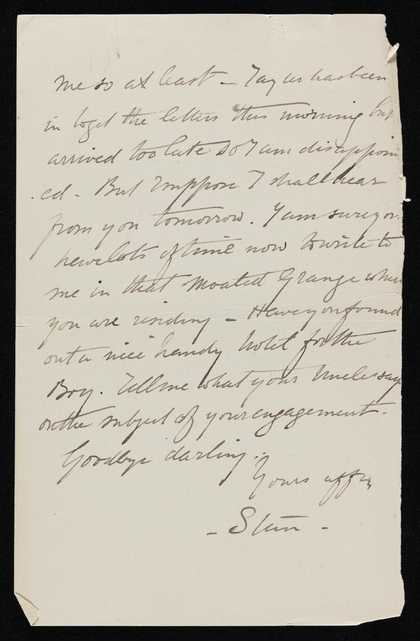 me so at least - Tay as has been
in to get the letters this morning but
arrived too late so I am disappoin
ed - But I suppose I shall hear
from you tomorrow. I am sure you
have lots of time now to write to
me in that Moated Grange where
you are residing - Have you found
out a nice handy hotel for the
Boy. Tell me what your Uncle say
on the subject of your engagement.
Goodbye darling.
Yours affn